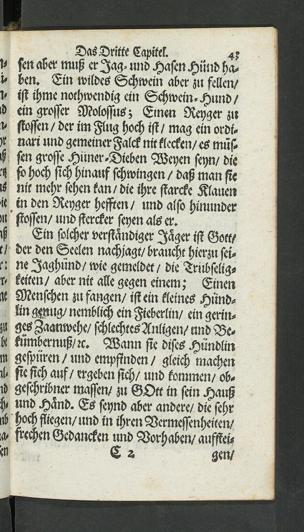 Das Dritte Capitel. 43
sen aber muß er Jag- und Hasen Hünd ha-
ben. Ein wildes Schwein aber zu fellen/
ist ihme nothwendig ein Schwein-Hund/
ein grosser Molossus; Einen Reyger zu
stossen/ der im Flug hoch ist/ mag ein ordi-
nari und gemeiner Falck nit klecken/ es müs-
sen grosse Hüner-Dieben Weyen seyn/ die
so hoch sich hinauf schwingen/ daß man sie
nit mehr sehen kan/ die ihre starcke Klauen
in den Reyger hefften/ und also hinunder
stossen/ und stercker seyen als er.
Ein solcher verständiger Jäger ist Gott/
der den Seelen nachjagt/ braucht hierzu sei-
ne Jaghünd/ wie gemeldet/ die Trübselig-
keiten/ aber nit alle gegen einem; Einen
Menschen zu fangen/ ist ein kleines Hünd-
lin genug/ nemblich ein Fieberlin/ ein gerin-
ges Zaanwehe/ schlechtes Anligen/ und Be-
kümbernuß/ ꝛc. Wann sie dises Hündlin
gespüren/ und empfinden/ gleich machen
sie sich auf/ ergeben sich/ und kommen/ ob-
geschribner massen/ zu GOtt in sein Hauß
und Händ. Es seynd aber andere/ die sehr
hoch fliegen/ und in ihren Vermessenheiten/
frechen Gedancken und Vorhaben/ auffstei-
C 2 gen/